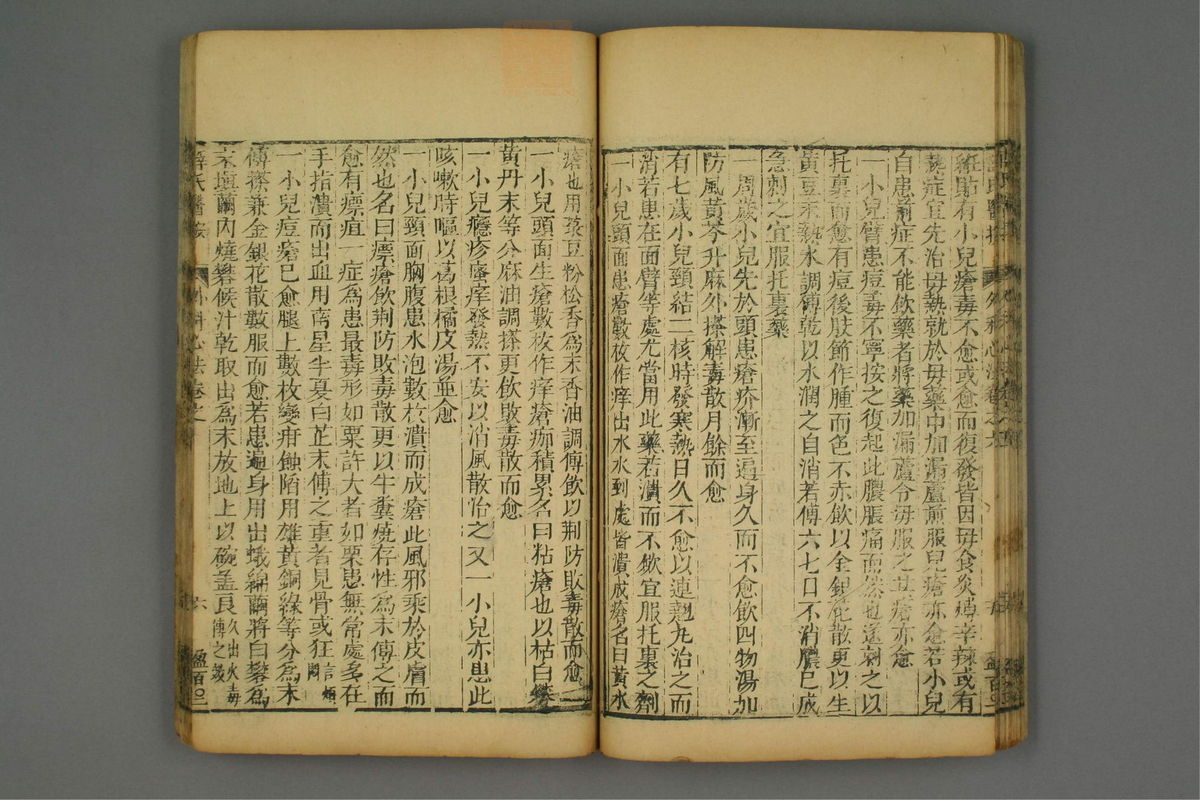 經驗有小兒瘡毒不愈或愈而復發皆因母食炎煿辛辣或有
熱症宜先治母熱就於母藥中加漏蘆煎服兒瘡亦愈若小兒
自患前症不能飲藥者將藥加漏蘆令母服之其瘡亦愈
一小兒臂患痘毒不寧按之復起此膿脹痛而然也遂刺之以
托裏而愈有痘後肢節作腫而色不赤飲以金銀花散更以生
黃豆末熱水調傅乾以水潤之自消若傅六七日不消膿已成
急刺之宜服托裏藥
一周歲小兒先於頭患瘡疥漸至遍身久而不愈飲四物湯加
防風黃芩升麻外搽解毒散月餘而愈
有七歲小兒頸結二核時發寒熱日久不愈以連翹丸治之而
消若患在面臂等處尤當用此藥若潰而不斂宜服托裏之劑
一小兒頭面患瘡數枚作痒出水水到處皆潰成瘡名曰黃水
瘡也用菉豆粉松香為末香油調傅飲以荆防敗毒散而愈
一小兒頭面生瘡數枚作痒瘡痂積累名曰粘瘡也以枯白礬
黃丹末等分麻油調搽更飲敗毒散而愈
一小兒癮疹瘙痒發熱不安以消風散治之又一小兒亦患此
咳嗽時嘔以葛根橘皮湯並愈
一小兒頸面胸腹患水泡數枚潰而成瘡此風邪乘於皮膚而
然也名曰瘭瘡飲荆防敗毒散更以牛糞燒存性為末傅之而
愈有瘭疽一症為患最毒形如粟許大者如栗患無常處多在
手指潰而出血用南星半夏白芷末傅之重者見骨或狂言煩悶
一小兒痘瘡已愈腿上數枚變疳蝕陷用雄黃銅綠等分為末
傅搽兼金銀花散數服而愈若患遍身用出蛾綿繭將白礬為
末塡繭內燒礬候汁乾取出為末放地上以碗盖良久出水毒傅之效
薛氏醫按 外科心法卷之 六